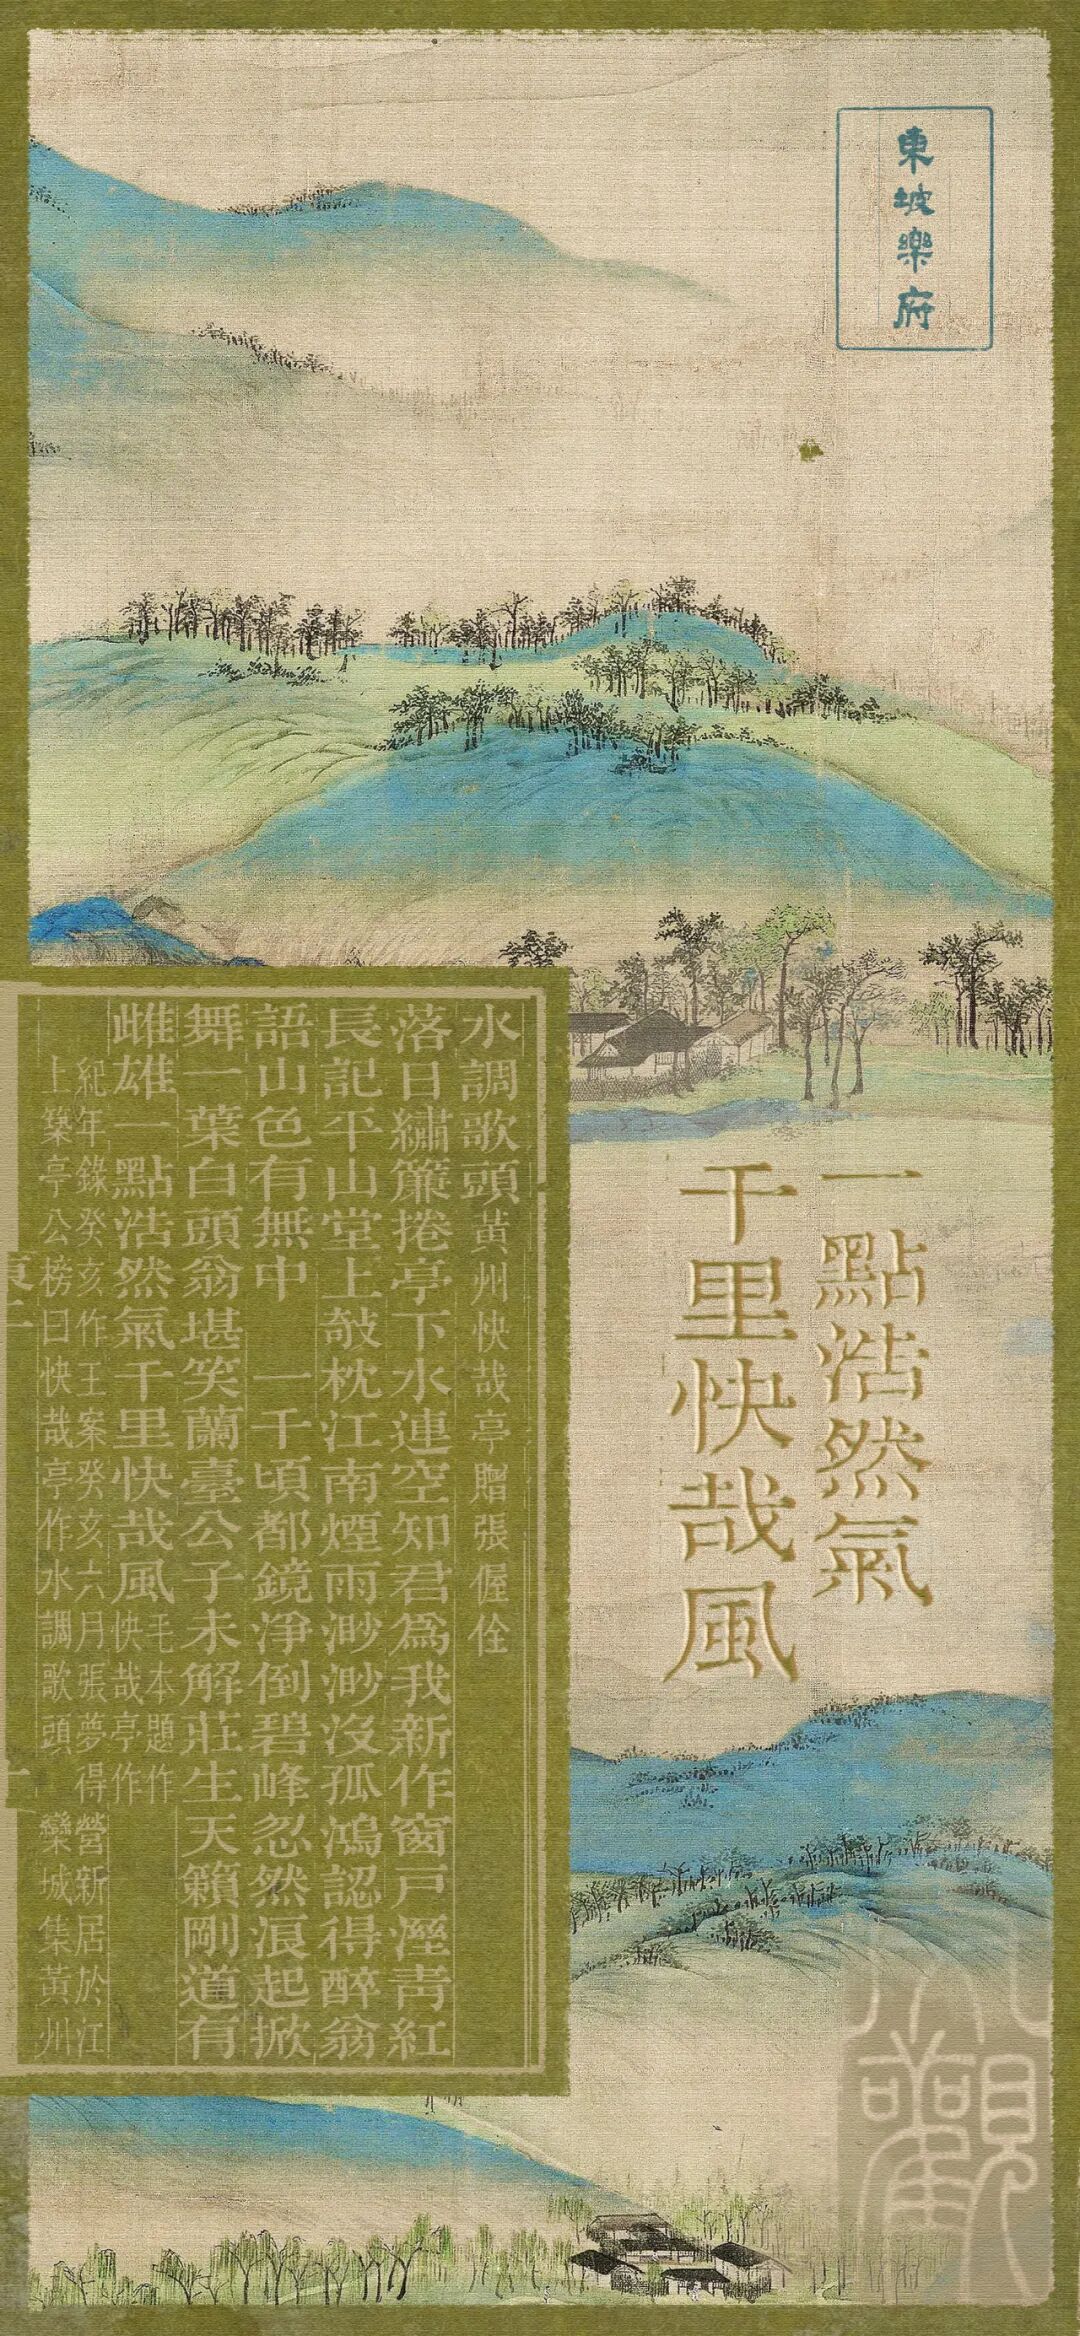 東坡樂府
一點浩然氣
千里快哉風
水調歌頭黃州快哉亭贈張偓佺
落日繡簾捲亭下水連空知君爲我新作窗戶溼青紅
長記平山堂上攲枕江南煙雨渺渺沒孤鴻認得醉翁
語山色有無中 一千頃都鏡淨倒碧峰忽然浪起掀
舞一葉白頭翁堪笑蘭臺公子未解莊生天籟剛道有
雌雄一點浩然氣千里快哉風毛本題作
快哉亭作
紀年錄癸亥作王案癸亥六月張夢得營新居於江
上築亭公榜曰快哉亭作水調歌頭 欒城集黃州
觀